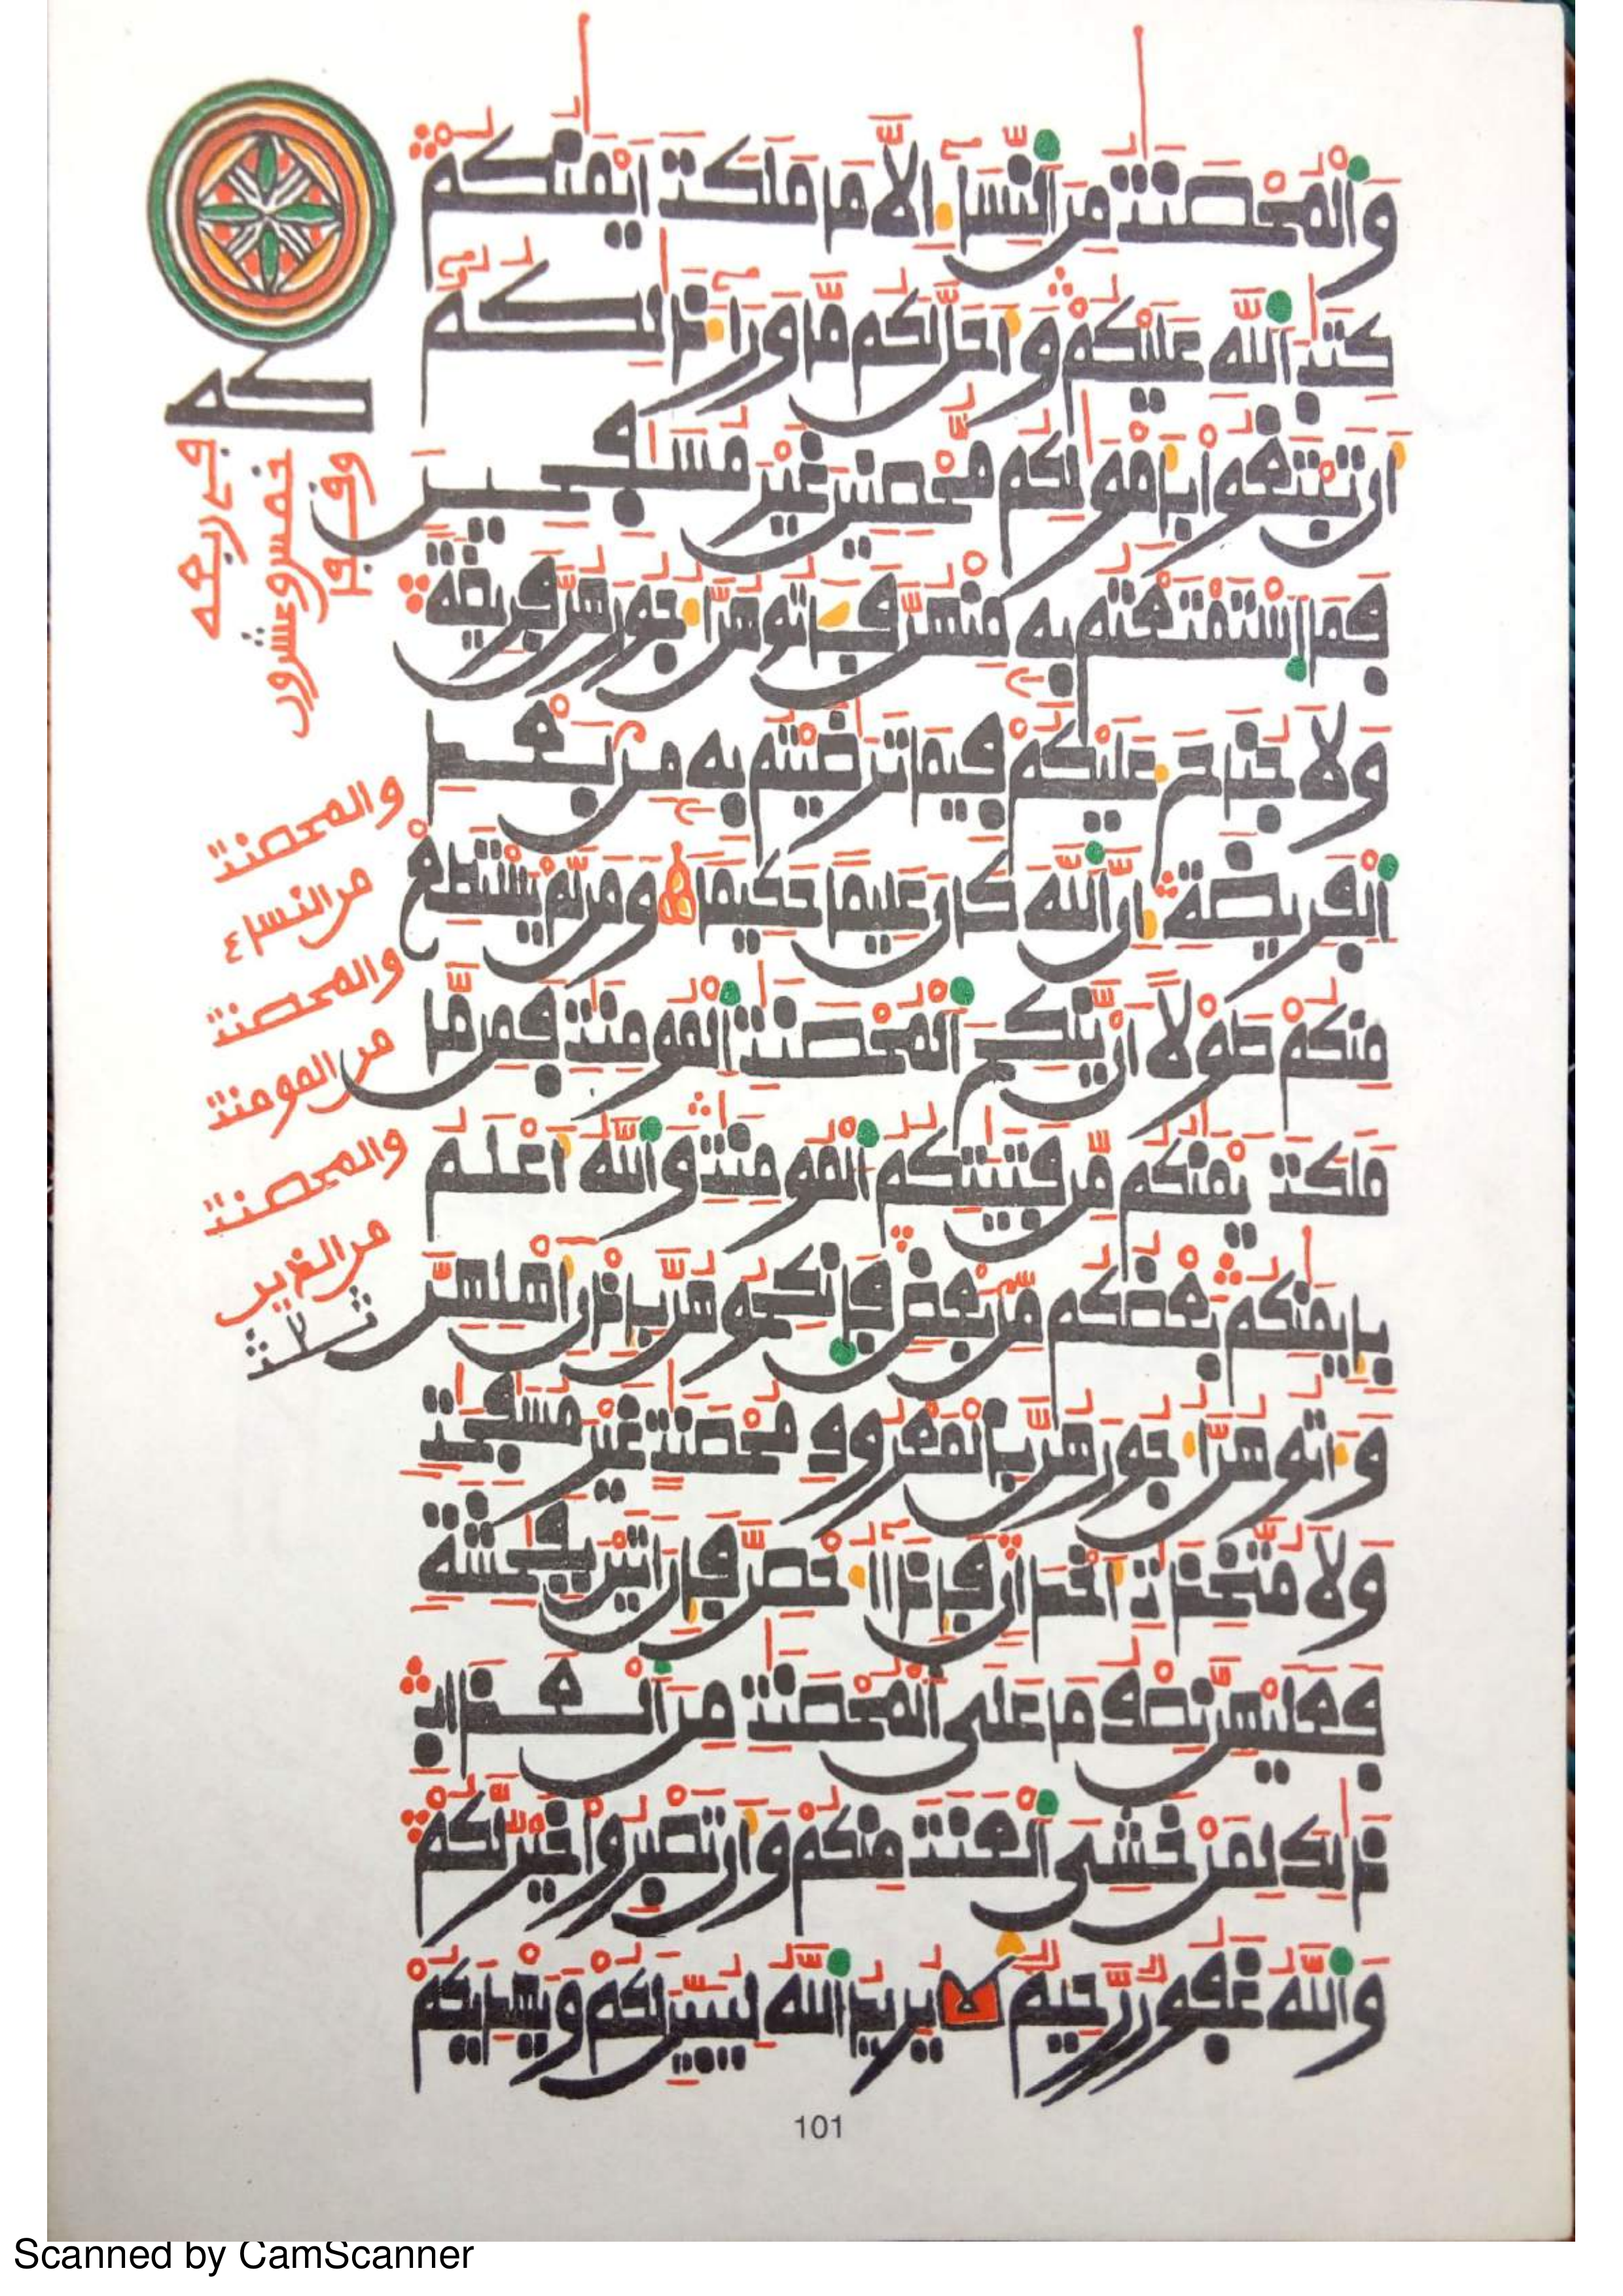 وَالْمُحْصَنَٰتُ مِنَ اَلنِّسَآءِ الَّا مَا مَلَكَتَ اَيْمَٰنُكُمْ
كِتَٰبَ اَللَّهِ عَلَيْكُمْ وَأَحَلَّ لَكُم مَّا وَرَآءَ ذَٰلِكُمُۥٓ
أَن تَبْتَغُواْ بِأَمْوَٰلِكُم مُّحْصِنِينَ غَيْرَ مُسَٰفِحِينَ
فَمَا اَسْتَمْتَعْتُم بِهِۦ مِنْهُنَّ فَـَٔاتُوهُنَّ أُجُورَهُنَّ فَرِيضَةً
وَلَا جُنَاحَ عَلَيْكُمْ فِيمَا تَرَٰضَيْتُم بِهِۦ مِنۢ بَعْدِ
اِلْفَرِيضَةِ إِنَّ اَللَّهَ كَانَ عَلِيمًا حَكِيمًا وَمَن لَّمْ يَسْتَطِعْ
مِنكُمْ طَوْلًا اَنْ يَّنكِحَ اَلْمُحْصَنَٰتِ اِلْمُومِنَٰتِ فَمِن مَّا
مَلَكَتَ اَيْمَٰنُكُم مِّن فَتَيَٰتِكُمُ اُلْمُومِنَٰتِ وَاللَّهُ أَعْلَمُ
بِإِيمَٰنِكُم بَعْضُكُم مِّنۢ بَعْضٍ فَانكِحُوهُنَّ بِإِذْنِ أَهْلِهِنَّ
وَءَاتُوهُنَّ أُجُورَهُنَّ بِالْمَعْرُوفِ مُحْصَنَٰتٍ غَيْرَ مُسَٰفِحَٰتٍ
وَلَا مُتَّخِذَٰتِ أَخْدَانٍ فَإِذَآ أُحْصِنَّ فَإِنَ اَتَيْنَ بِفَٰحِشَةٍ
فَعَلَيْهِنَّ نِصْفُ مَا عَلَى اَلْمُحْصَنَٰتِ مِنَ اَلْعَذَابِ
ذَٰلِكَ لِمَنْ خَشِىَ اَلْعَنَتَ مِنكُمْ وَأَن تَصْبِرُواْ خَيْرٌ لَّكُمْ
وَاللَّهُ غَفُورٌ رَّحِيمٌ يُرِيدُ اُللَّهُ لِيُبَيِّنَ لَكُمْ وَيَهْدِيَكُمْ
كه
وفـ
خمس وعشرون
في ربعه
والمحصنت
من النساء ٤
والمحصنت
من المومنت
والمحصنت
من الغير
ثلث
101
Scanned by CamScanner